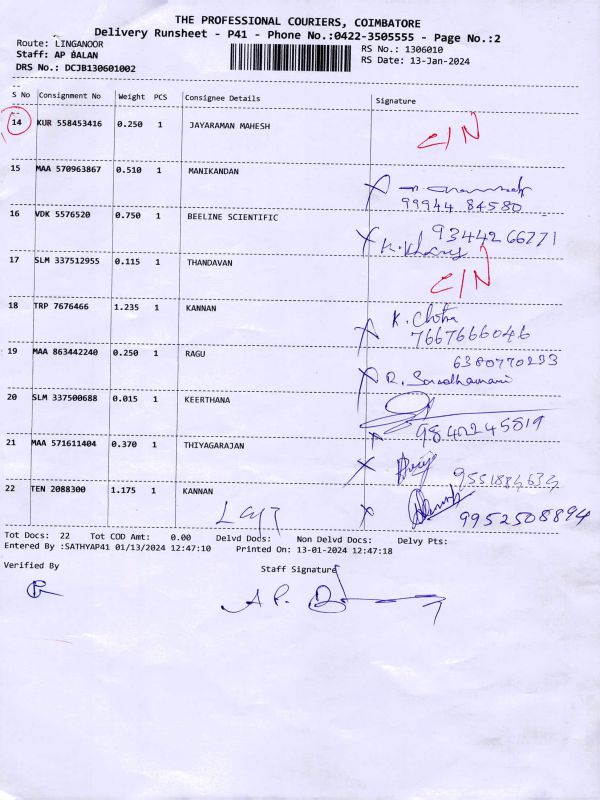 THE PROFESSIONAL COURIERS, COIMBATORE
Delivery Runsheet - P41 - Phone No.:0422-3505555 - Page No.:2
Route: LINGANOOR
RS No.: 1306010
Staff: AP BALAN
RS Date: 13-Jan-2024
DRS No.: DCJB130601002
S No Consignment No Weight PCS Consignee Details Signature
14 KUR 558453416 0.250 1 JAYARAMAN MAHESH C/N
15 MAA 570963867 0.510 1 MANIKANDAN
99944 84580
16 VDK 5576520 0.750 1 BEELINE SCIENTIFIC 9344266271
17 SLM 337512955 0.115 1 THANDAVAN C/N
18 TRP 7676466 1.235 1 KANNAN K. Chitra
7667666046
19 MAA 863442240 0.250 1 RAGU 6380770293
20 SLM 337500688 0.015 1 KEERTHANA
9840245819
21 MAA 571611404 0.370 1 THIYAGARAJAN
22 TEN 2088300 1.175 1 KANNAN 9952508894
Tot Docs: 22 Tot COD Amt: 0.00 Delvd Docs: Non Delvd Docs: Delvy Pts:
Entered By :SATHYAP41 01/13/2024 12:47:10 Printed On: 13-01-2024 12:47:18
Verified By Staff Signature